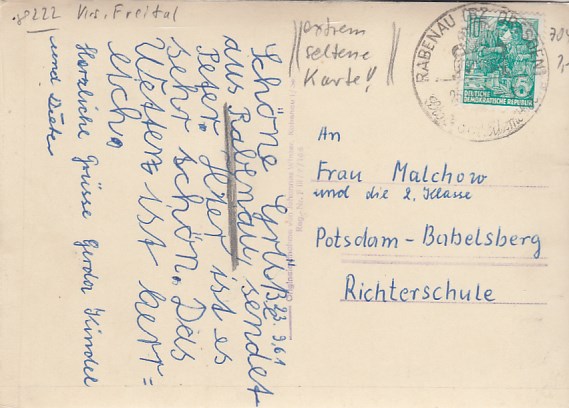 38222 Krs. Freital
extrem
seltene
Karte!!
RABENAU (BZ. DRESDEN)
DEUTSCHE
DEMOKRATISCHE REPUBLIK
6
Schöne Grüße
aus Rabenau sendet
Peter. Hier ist es
sehr schön. Das
Wetter ist herr=
lich.
23. 9. 61
Herzliche Grüsse Gerda Kindel
und Dieter
An
Frau Malchow
und die 2. Klasse
Potsdam-Babelsberg
Richterschule